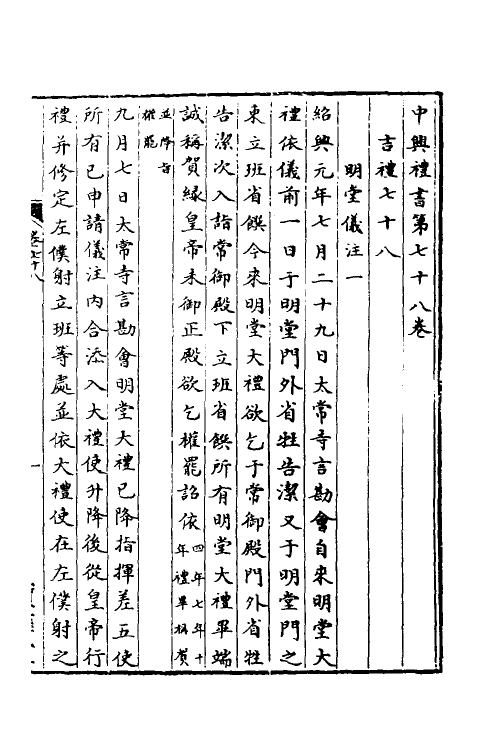 中興禮書第七十八卷
吉禮七十八
明堂儀注一
紹興元年七月二十九日太常寺言勘會自來明堂大
禮依儀前一日于明堂門外省牲告潔又于明堂門之
東立班省饌今來明堂大禮欲乞于常御殿門外省牲
告潔次入詣常御殿下立班省饌所有明堂大禮畢端
誠稱賀緣皇帝未御正殿欲乞權罷詔依四年七年十
年禮畢稱賀
並降旨
權罷
九月七日太常寺言勘會明堂大禮已降指揮差五使
所有已申請儀注內合添入大禮使升降後從皇帝行
禮并修定左僕射立班等處並依大禮使在左僕射之
卷七十八
一